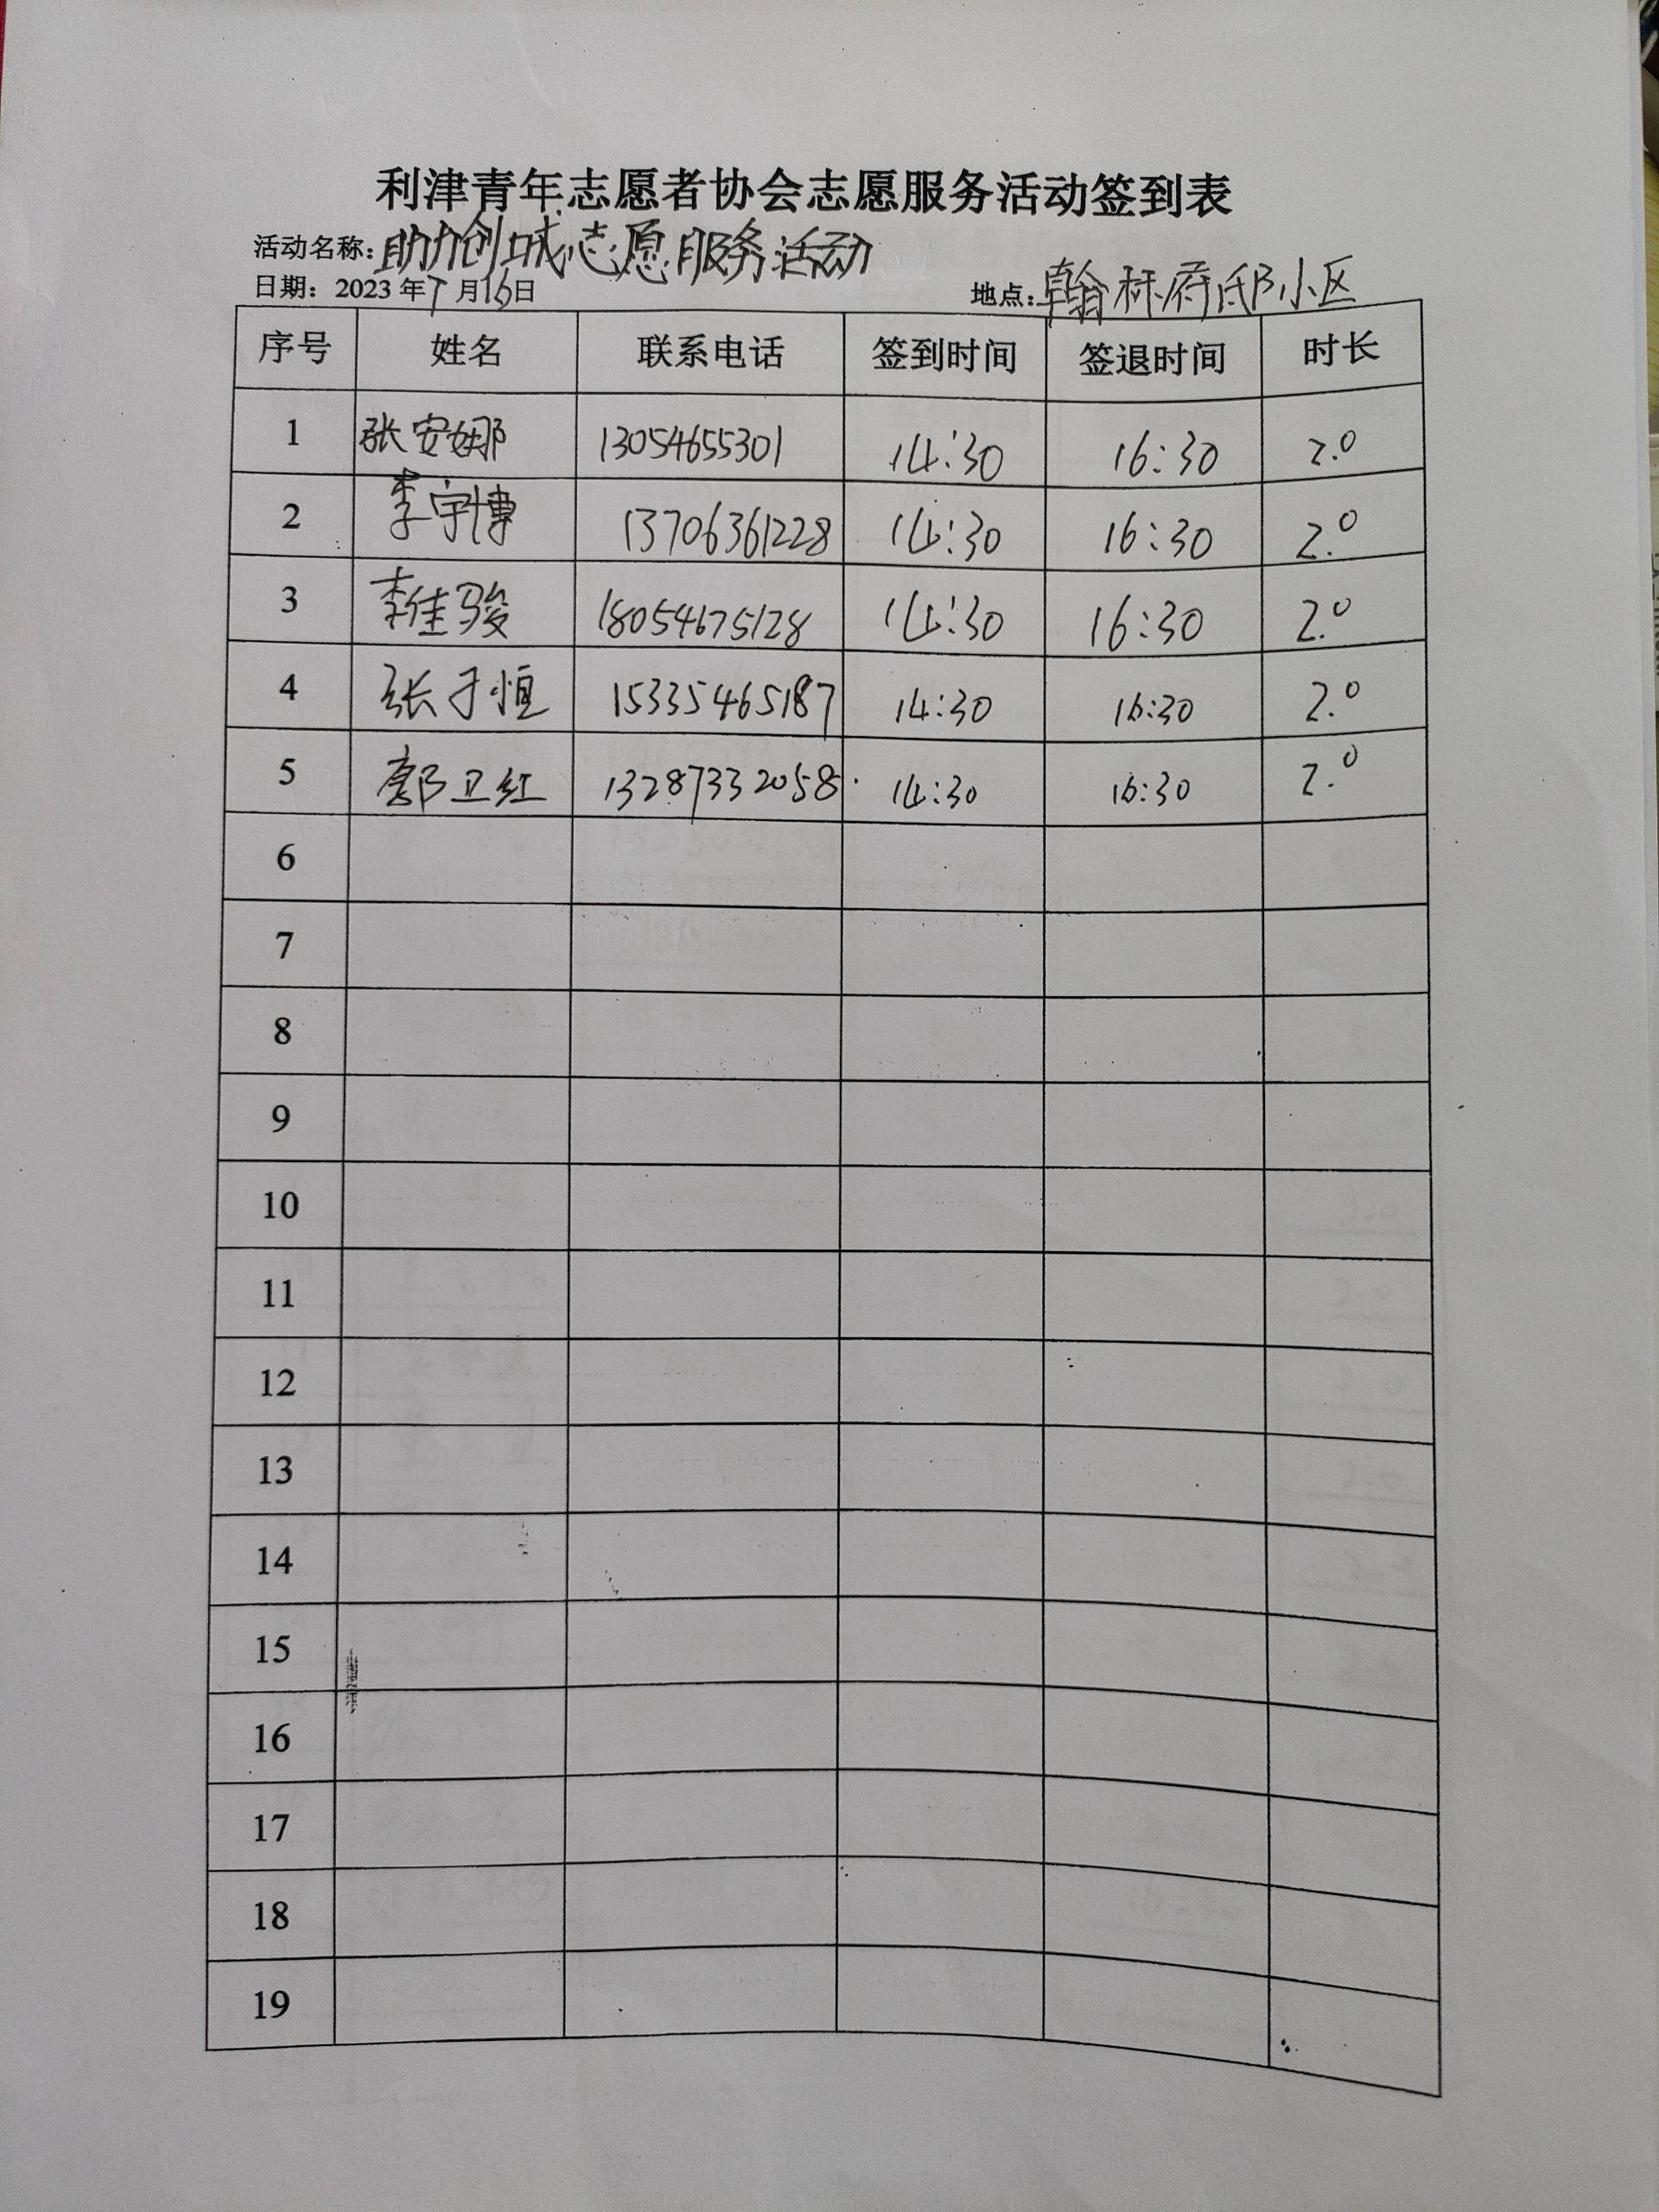 利津青年志愿者协会志愿服务活动签到表
活动名称：助力创城志愿服务活动
日期：2023年7月16日 地点：翰林府邸小区
序号 姓名 联系电话 签到时间 签退时间 时长
1 张安娜 13054655301 14:30 16:30 2.0
2 李宇博 13706361228 14:30 16:30 2.0
3 李佳骏 18054675128 14:30 16:30 2.0
4 张于恒 15335465187 14:30 16:30 2.0
5 郭卫红 13287332058 14:30 16:30 2.0
6
7
8
9
10
11
12
13
14
15
16
17
18
19